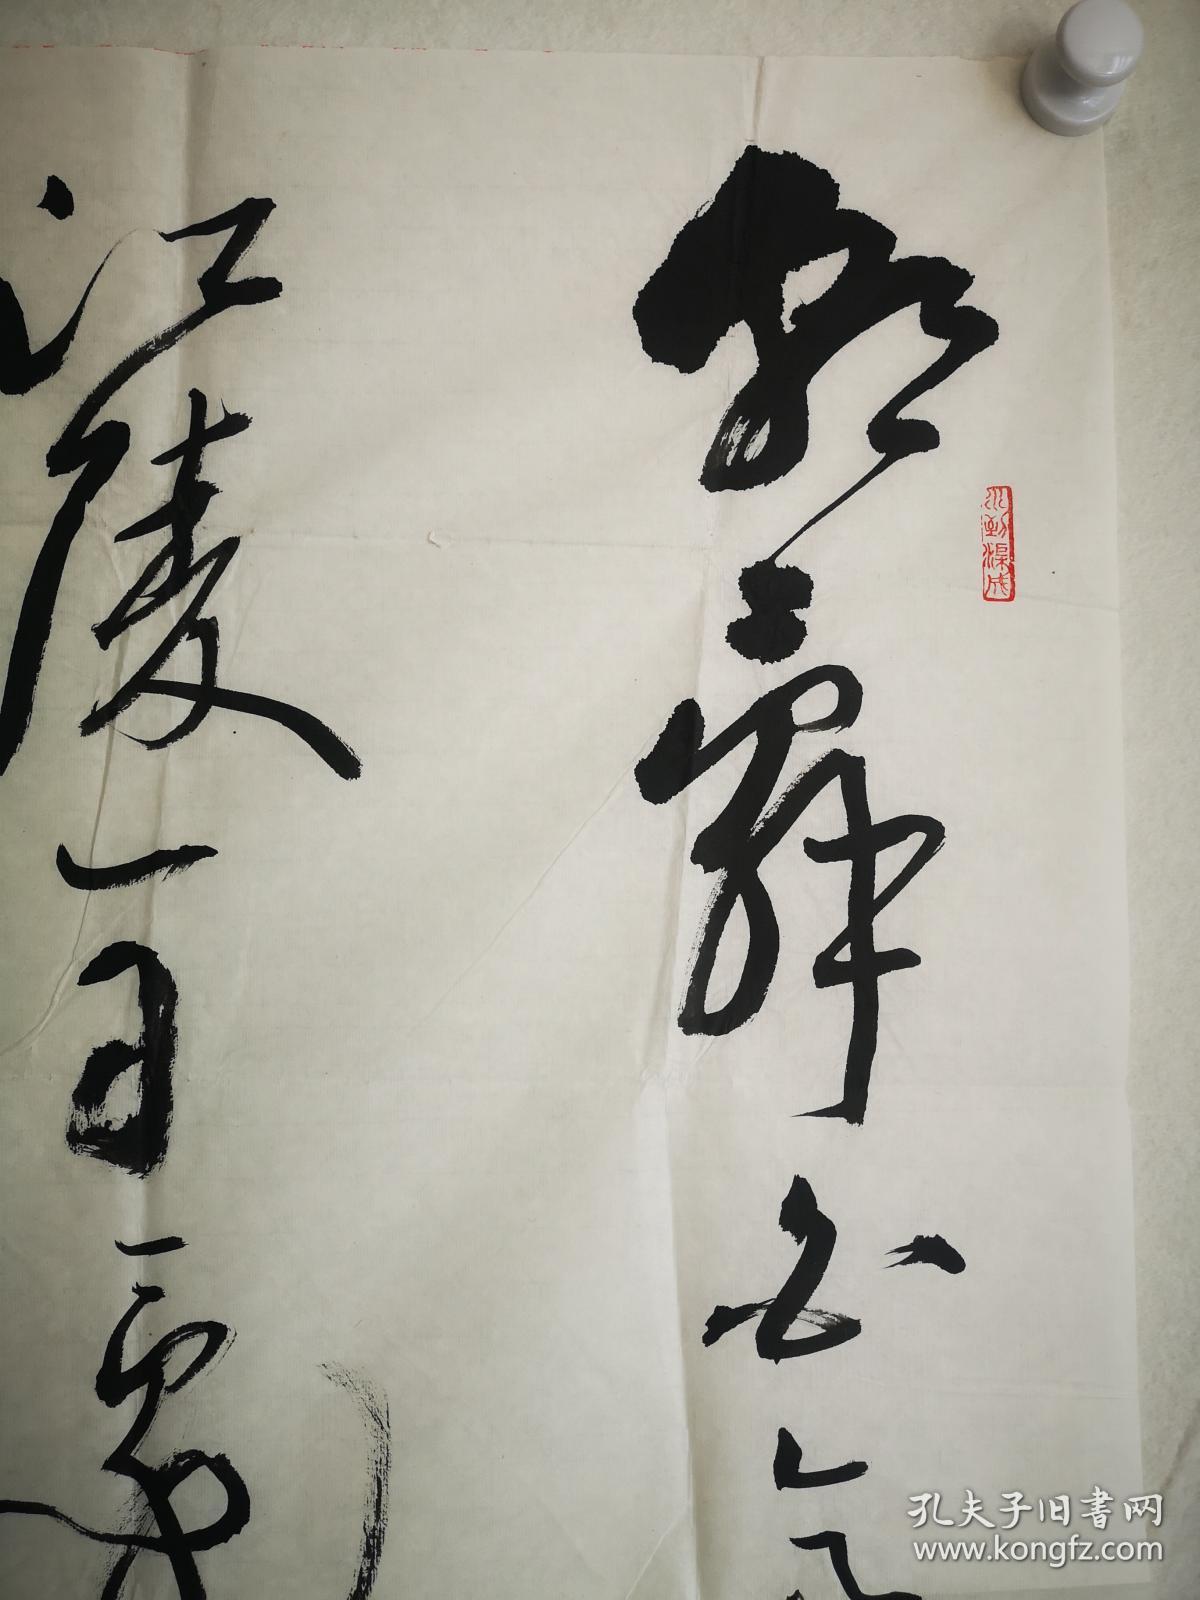 朝辞白
江陵一日还
水到渠成
孔夫子旧书网
www.kongfz.com